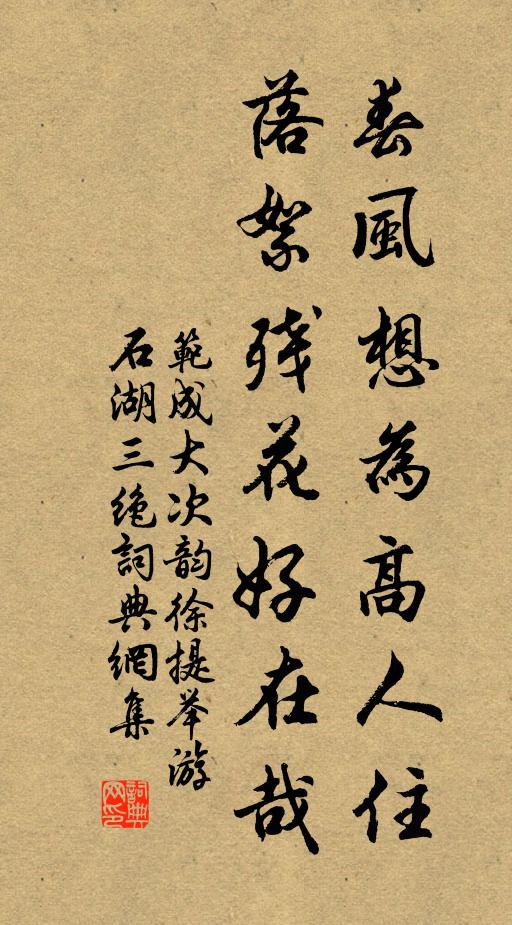 春風想為高人住
落絮殘花好在哉
範成大次韵徐提举游
石湖三绝詞典網集
詞典
网印